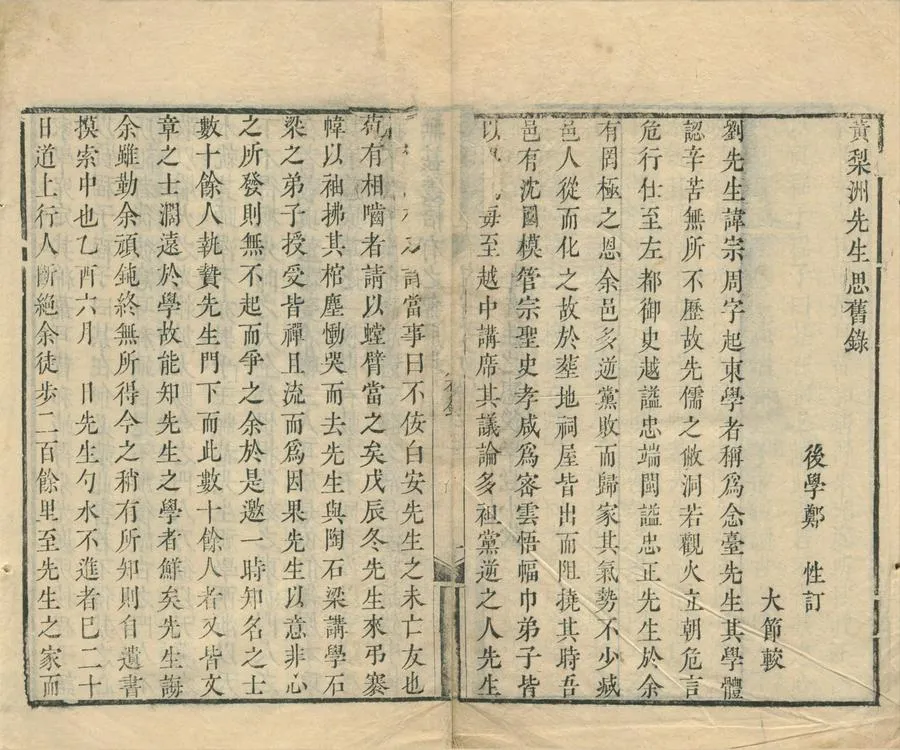 黃梨洲先生思舊錄
後學鄭 性訂
大節較
劉先生諱宗周字起東學者稱爲念臺先生其學體
認辛苦無所不歷故先儒之敝洞若觀火立朝危言
危行仕至左都御史越諡忠端閩諡忠正先生於余
有罔極之恩余邑多逆黨敗而歸家其氣勢不少減
邑人從而化之故於葬地祠屋皆出而阻撓其時吾
邑有沈國模管宗聖史孝咸爲密雲悟幅巾弟子皆
以 每至越中講席其議論多祖黨逆之人先生
當事曰不佞白安先生之未亡友也
苟有相嚙者請以螳臂當之矣戊辰冬先生來弔褰
幃以袖拂其棺塵慟哭而去先生與陶石梁講學石
梁之弟子授受皆禪且流而爲因果先生以意非心
之所發則無不起而爭之余於是邀一時知名之士
數十餘人執贄先生門下而此數十餘人者又皆文
章之士濶遠於學故能知先生之學者鮮矣先生誨
余雖勤余頑鈍終無所得今之稍有所知則自遺書
摸索中也乙酉六月 日先生勺水不進者已二十
日道上行人斷絶余徒步二百餘里至先生之家而